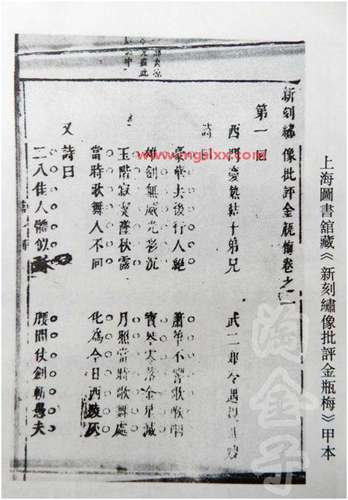 上海圖書館藏《新刻繡像批評金瓶梅》甲本
新刻繡像批評金瓶梅卷之一
第一回
西門慶熱結十弟兄 武二郎今遇
詩曰
豪華去後行人絕 簫箏不響歌喉咽
雄劍無威光彩沉 寶琴零落金星滅
玉階寂寞墜秋露 月照當時歌舞處
當時歌舞人不回 化為今日西陵灰
又詩曰
二八佳人體似酥 腰間仗劍斬愚夫
www.mgslxx.com